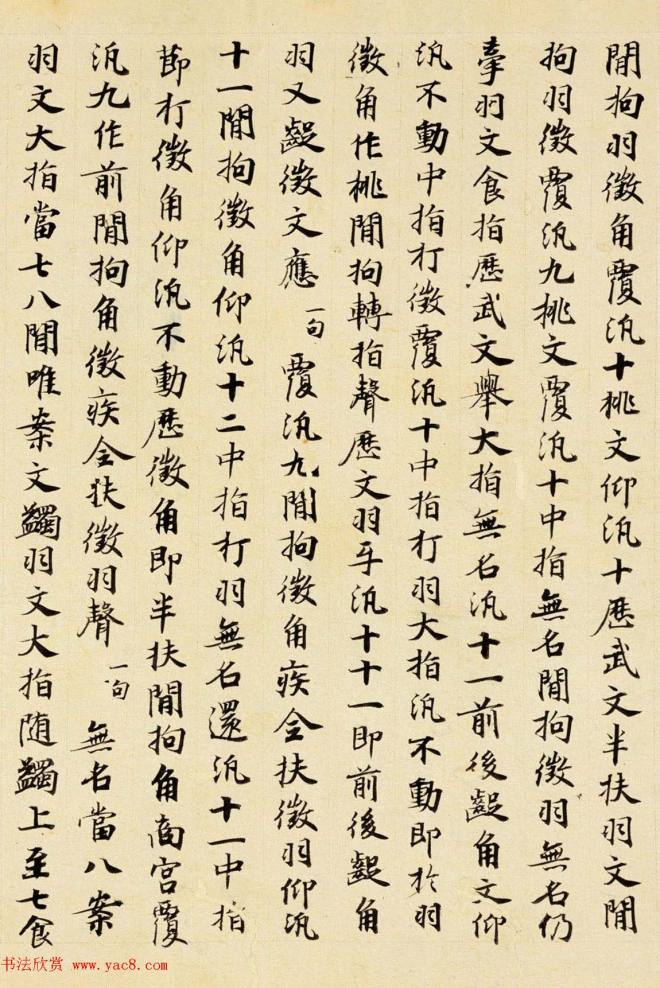 間拘羽徵角覆汎十挑文仰汎十歷武文半扶羽文間
拘羽徵覆汎九挑文覆汎十中指無名間拘徵羽無名仍
牽羽文食指歷武文舉大指無名汎十一前後齪角文仰
汎不動中指打徵覆汎十中指打羽大指汎不動即於羽
徵角作挑間拘轉指聲歷文羽㸦汎十十一即前後齪角
羽又齪徵文應 一句 覆汎九間拘徵角疾全扶徵羽仰汎
十一間拘徵角仰汎十二中指打羽無名還汎十一中指
節打徵角仰汎不動歷徵角即半扶間拘角商宮覆
汎九作前間拘角徵疾全扶徵羽聲 一句 無名當八案
羽文大指當七八間唯案文蠲羽文大指随蠲上至七食
书法欣赏 www.yac8.com